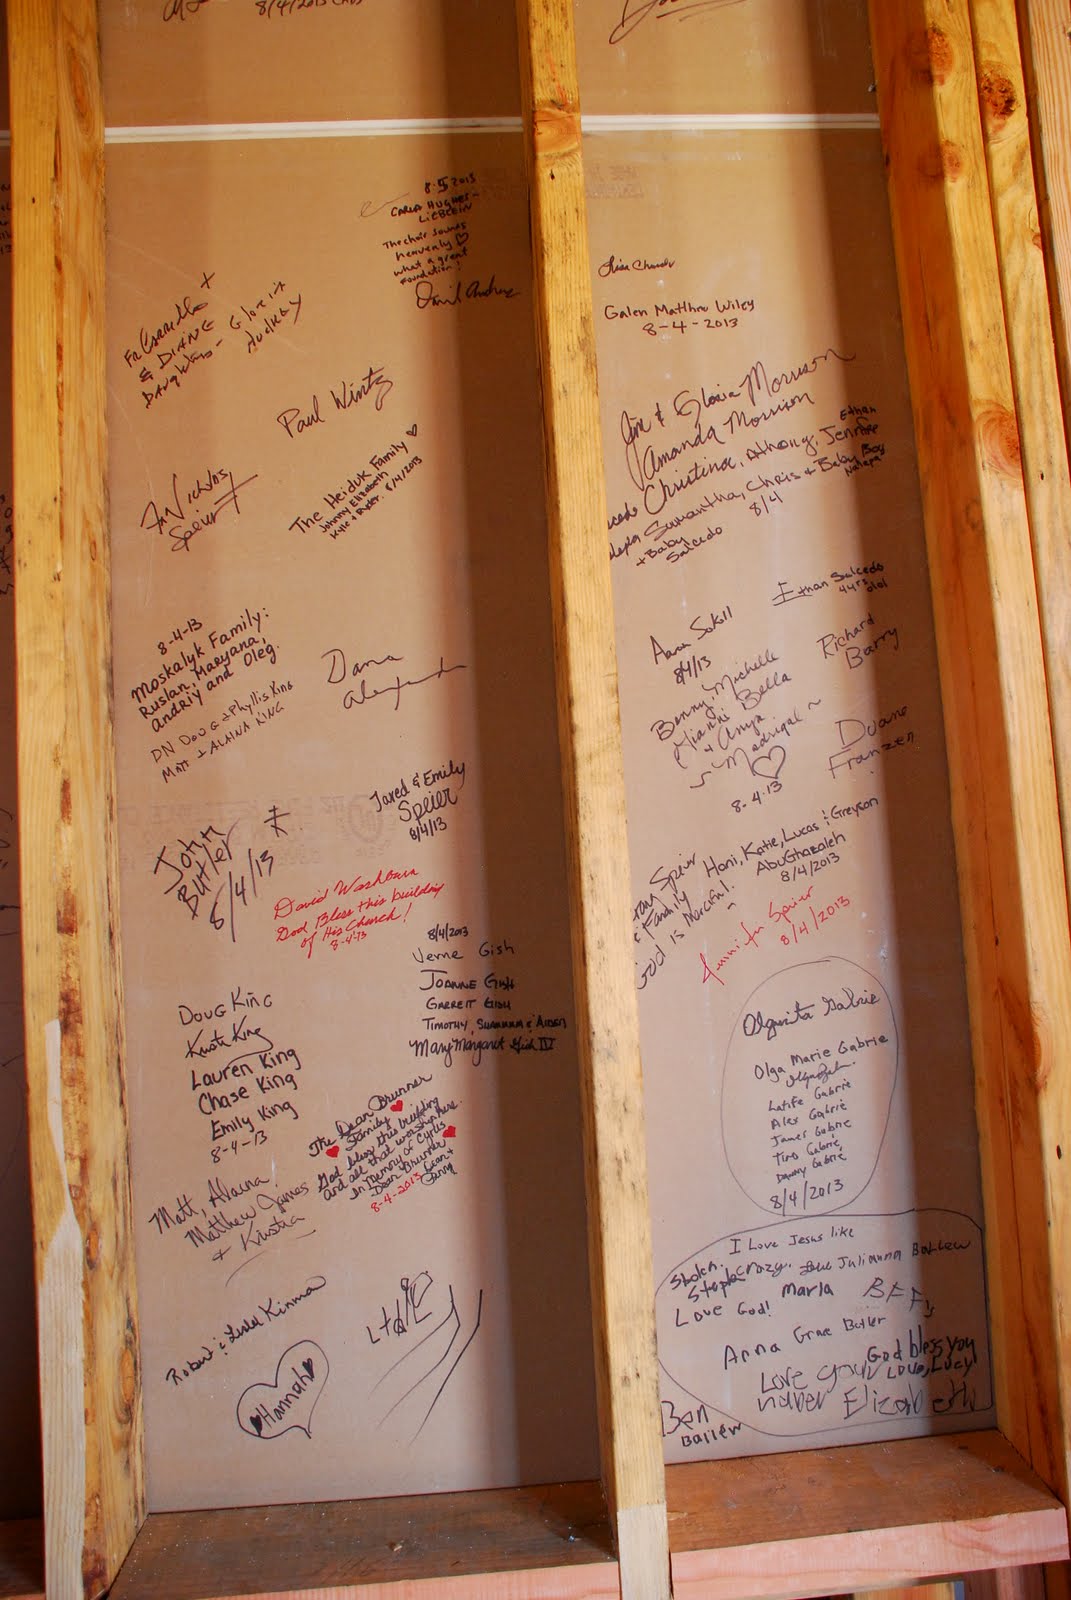 8/4/2013
8·5 2013
CARLA HUGHES-
LIEBLEIN
The choir sounds
heavenly ♡
what a great
foundation!
David
& DIANE
Paul Wintz
Fr Nicholas
Speier
The Heiduk Family ♡
Johnny Elizabeth
Kyle + Ryder. 8/4/2013
8-4-13
Moskalyk Family:
Ruslan, Maryana,
Andriy and Oleg.
DN DOUG & Phyllis King
MATT & ALAINA KING
Dana
Jared & Emily
Speier
8/4/13
John
Butler
8/4/13
David Washburn
God Bless this building
of His Church!
8-4-13
8/4/2013
Verne Gish
JOANNE GISH
GARRETT GISH
TIMOTHY, SUSANNA & AIDEN
Mary Margaret Gish IV
DOUG KING
Kristi King
Lauren King
Chase King
Emily King
8-4-13
The Dean Brunner
Family
God bless this building
and all that worship here.
In memory of Cyrus
Dean Brunner
8-4-2013 Dean +
Penny
Matt, Alaina,
Matthew James
+ Kristia
Robert & Leslel Kinma
Hannah
Galen Matthew Wiley
8-4-2013
Jim & Gloria Morrison
Amanda Morrison
Christina, Anthony, Jennifer
Ethan
Samantha, Chris + Baby Boy
8/4
+ Baby
Salcedo
Ethan Salcedo
4 yrs
old
8/4/13
Richard
Barry
Benny, Michelle
Gianni Bella
+ Anya
~ Madrigal ~
♡
8-4-13
Duane
Franzen
Speier
& Family
God is Merciful!
Hani, Katie, Lucas & Greyson
AbuGhazaleh
8/4/2013
Jennifer Speier
8/4/2013
Olguita Gabrie
Olga Marie Gabrie
Latife Gabrie
Alex Gabrie
James Gabrie
Tino Gabrie
Danny Gabrie
8/4/2013
I Love Jesus like
crazy. Love Julimann Ballew
Love God! Marla BFFs
Anna Grace Butler
God bless you
Love, Lucy
Love your
naber Elizabeth
Ben
Ballew